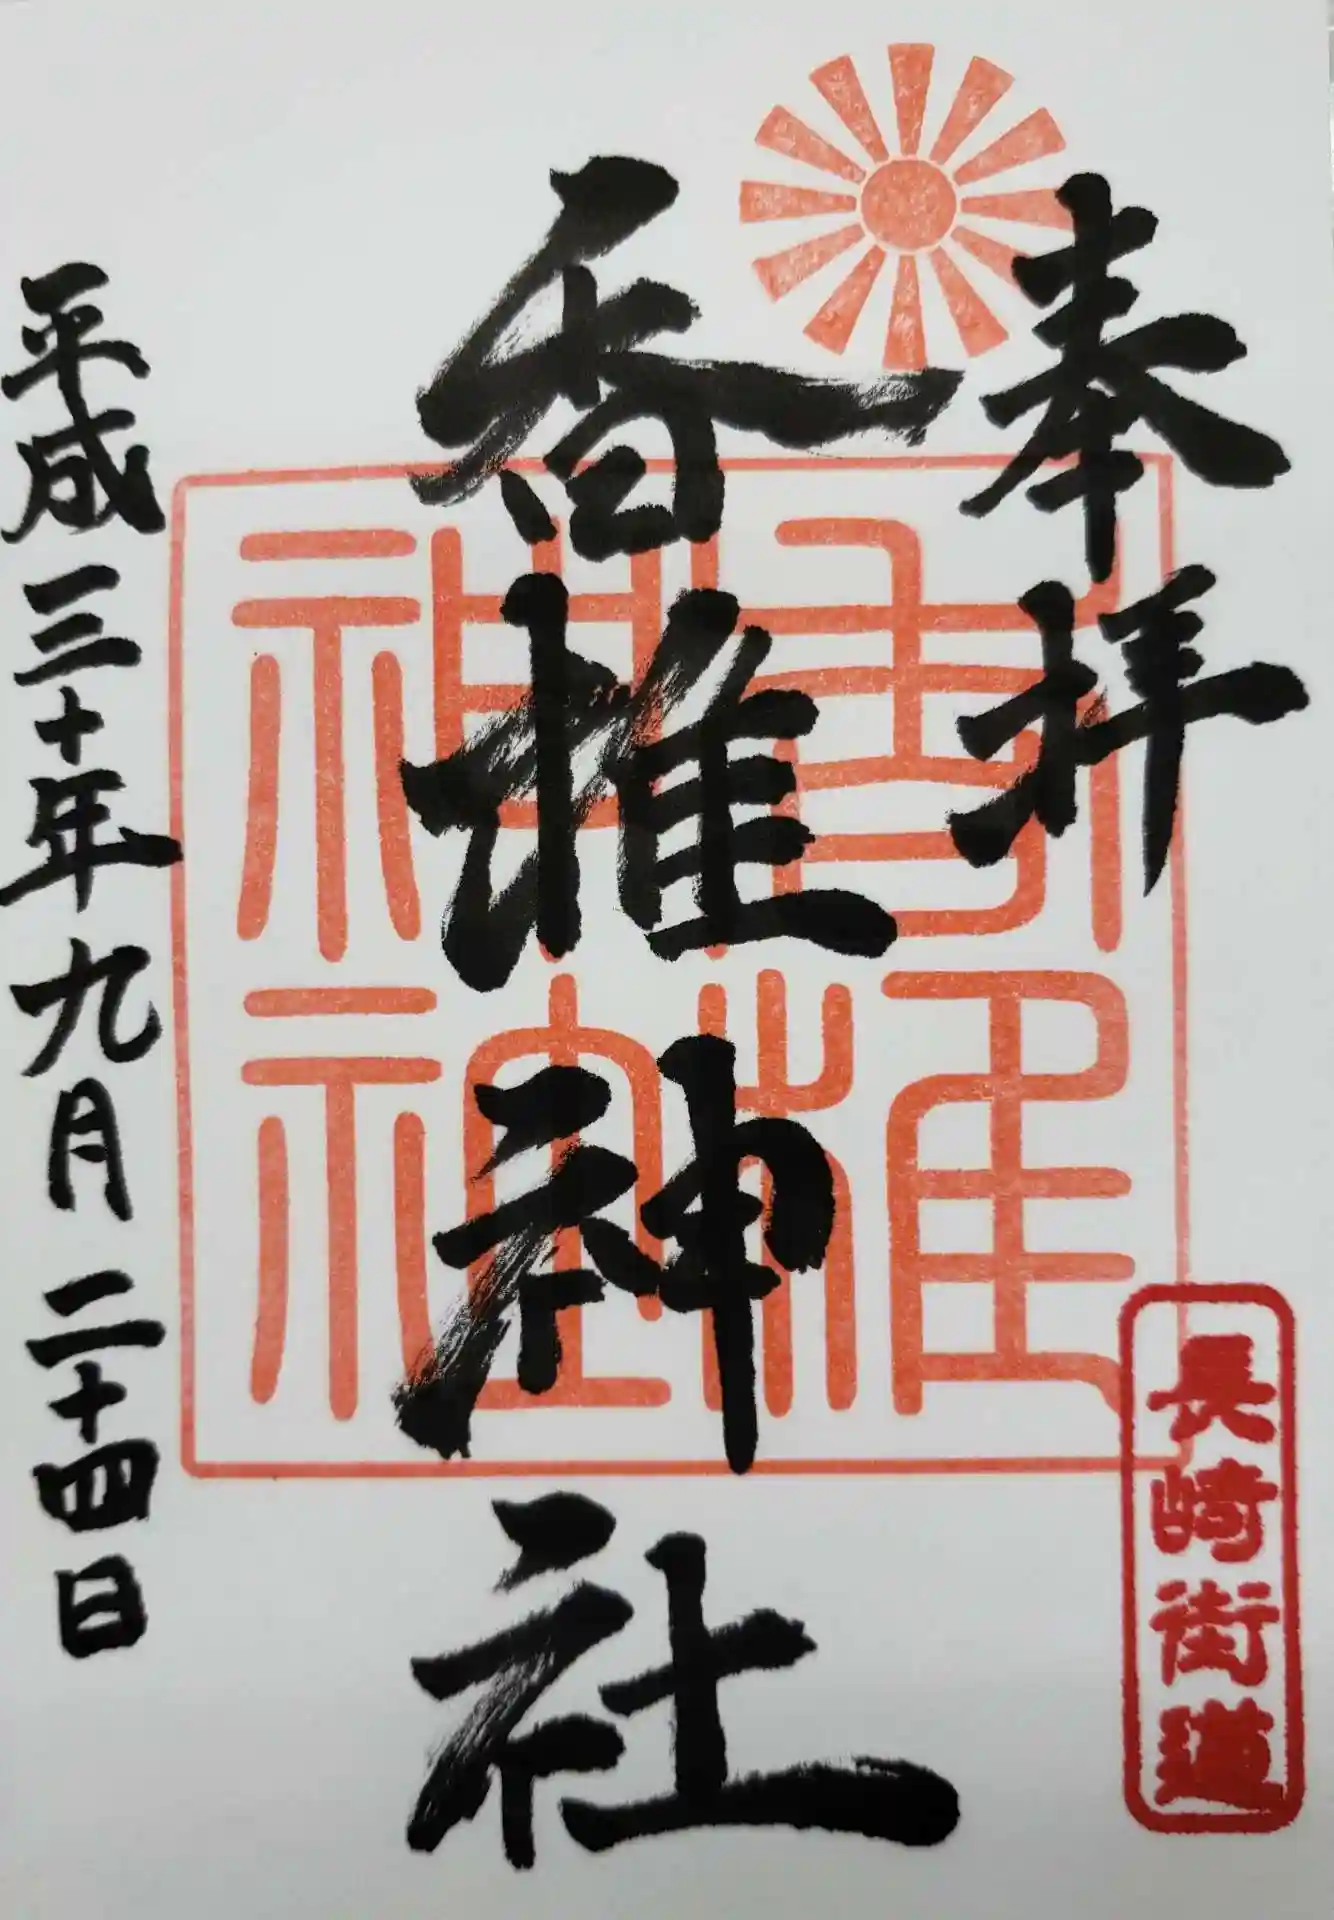 奉拝
長崎街道
香椎神社
香椎神社
平成三十年九月二十四日